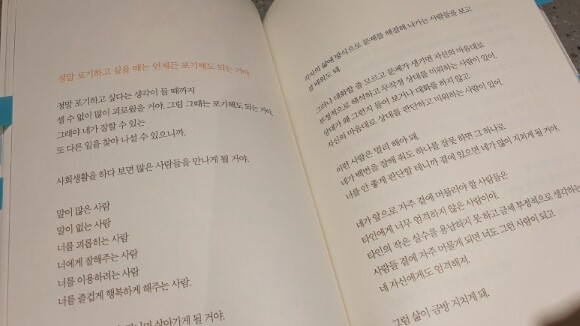 정말 포기하고 싶을 때는 언제든 포기해도 되는 거야.
정말 포기하고 싶다는 생각이 들 때까지
셀 수 없이 많이 괴로웠을 거야. 그럼 그때는 포기해도 되는 거야.
그래야 네가 잘할 수 있는
또 다른 일을 찾아 나설 수 있으니까.
사회생활을 하다 보면 많은 사람들을 만나게 될 거야.
말이 많은 사람
말이 없는 사람
너를 괴롭히는 사람
너에게 잘해주는 사람
너를 이용하려는 사람
너를 즐겁게 행복하게 해주는 사람.
살아가게 될 거야.
자신의 삶에 방식으로 문제를 해결해 나가는 사람들을 보고
그러나 대화할 줄 모르고 문제가 생기면 자신의 마음대로
부정적으로 해석하고 무작정 상대를 미워하는 사람이 있어.
상대가 왜 그런지 물어 보거나 대화를 하지 않고
자신의 마음대로 상대를 판단하고 미워하는 사람이 있어.
이런 사람은 멀리 해야 돼.
네가 백번을 잘해 줘도 하나를 잘못 하면 그 하나로
너를 안 좋게 판단할 테니까 곁에 있으면 네가 많이 지치게 될 거야.
네가 앞으로 자주 곁에 머물러야 할 사람들은
타인에게 너무 엄격하지 않은 사람이야.
타인의 작은 실수를 용납하지 못 하고 금세 부정적으로 생각하는
사람들 곁에 자주 머물게 되면 너도 그런 사람이 되고
네 자신에게도 엄격해져.
그럼 삶이 금방 지치게 돼.